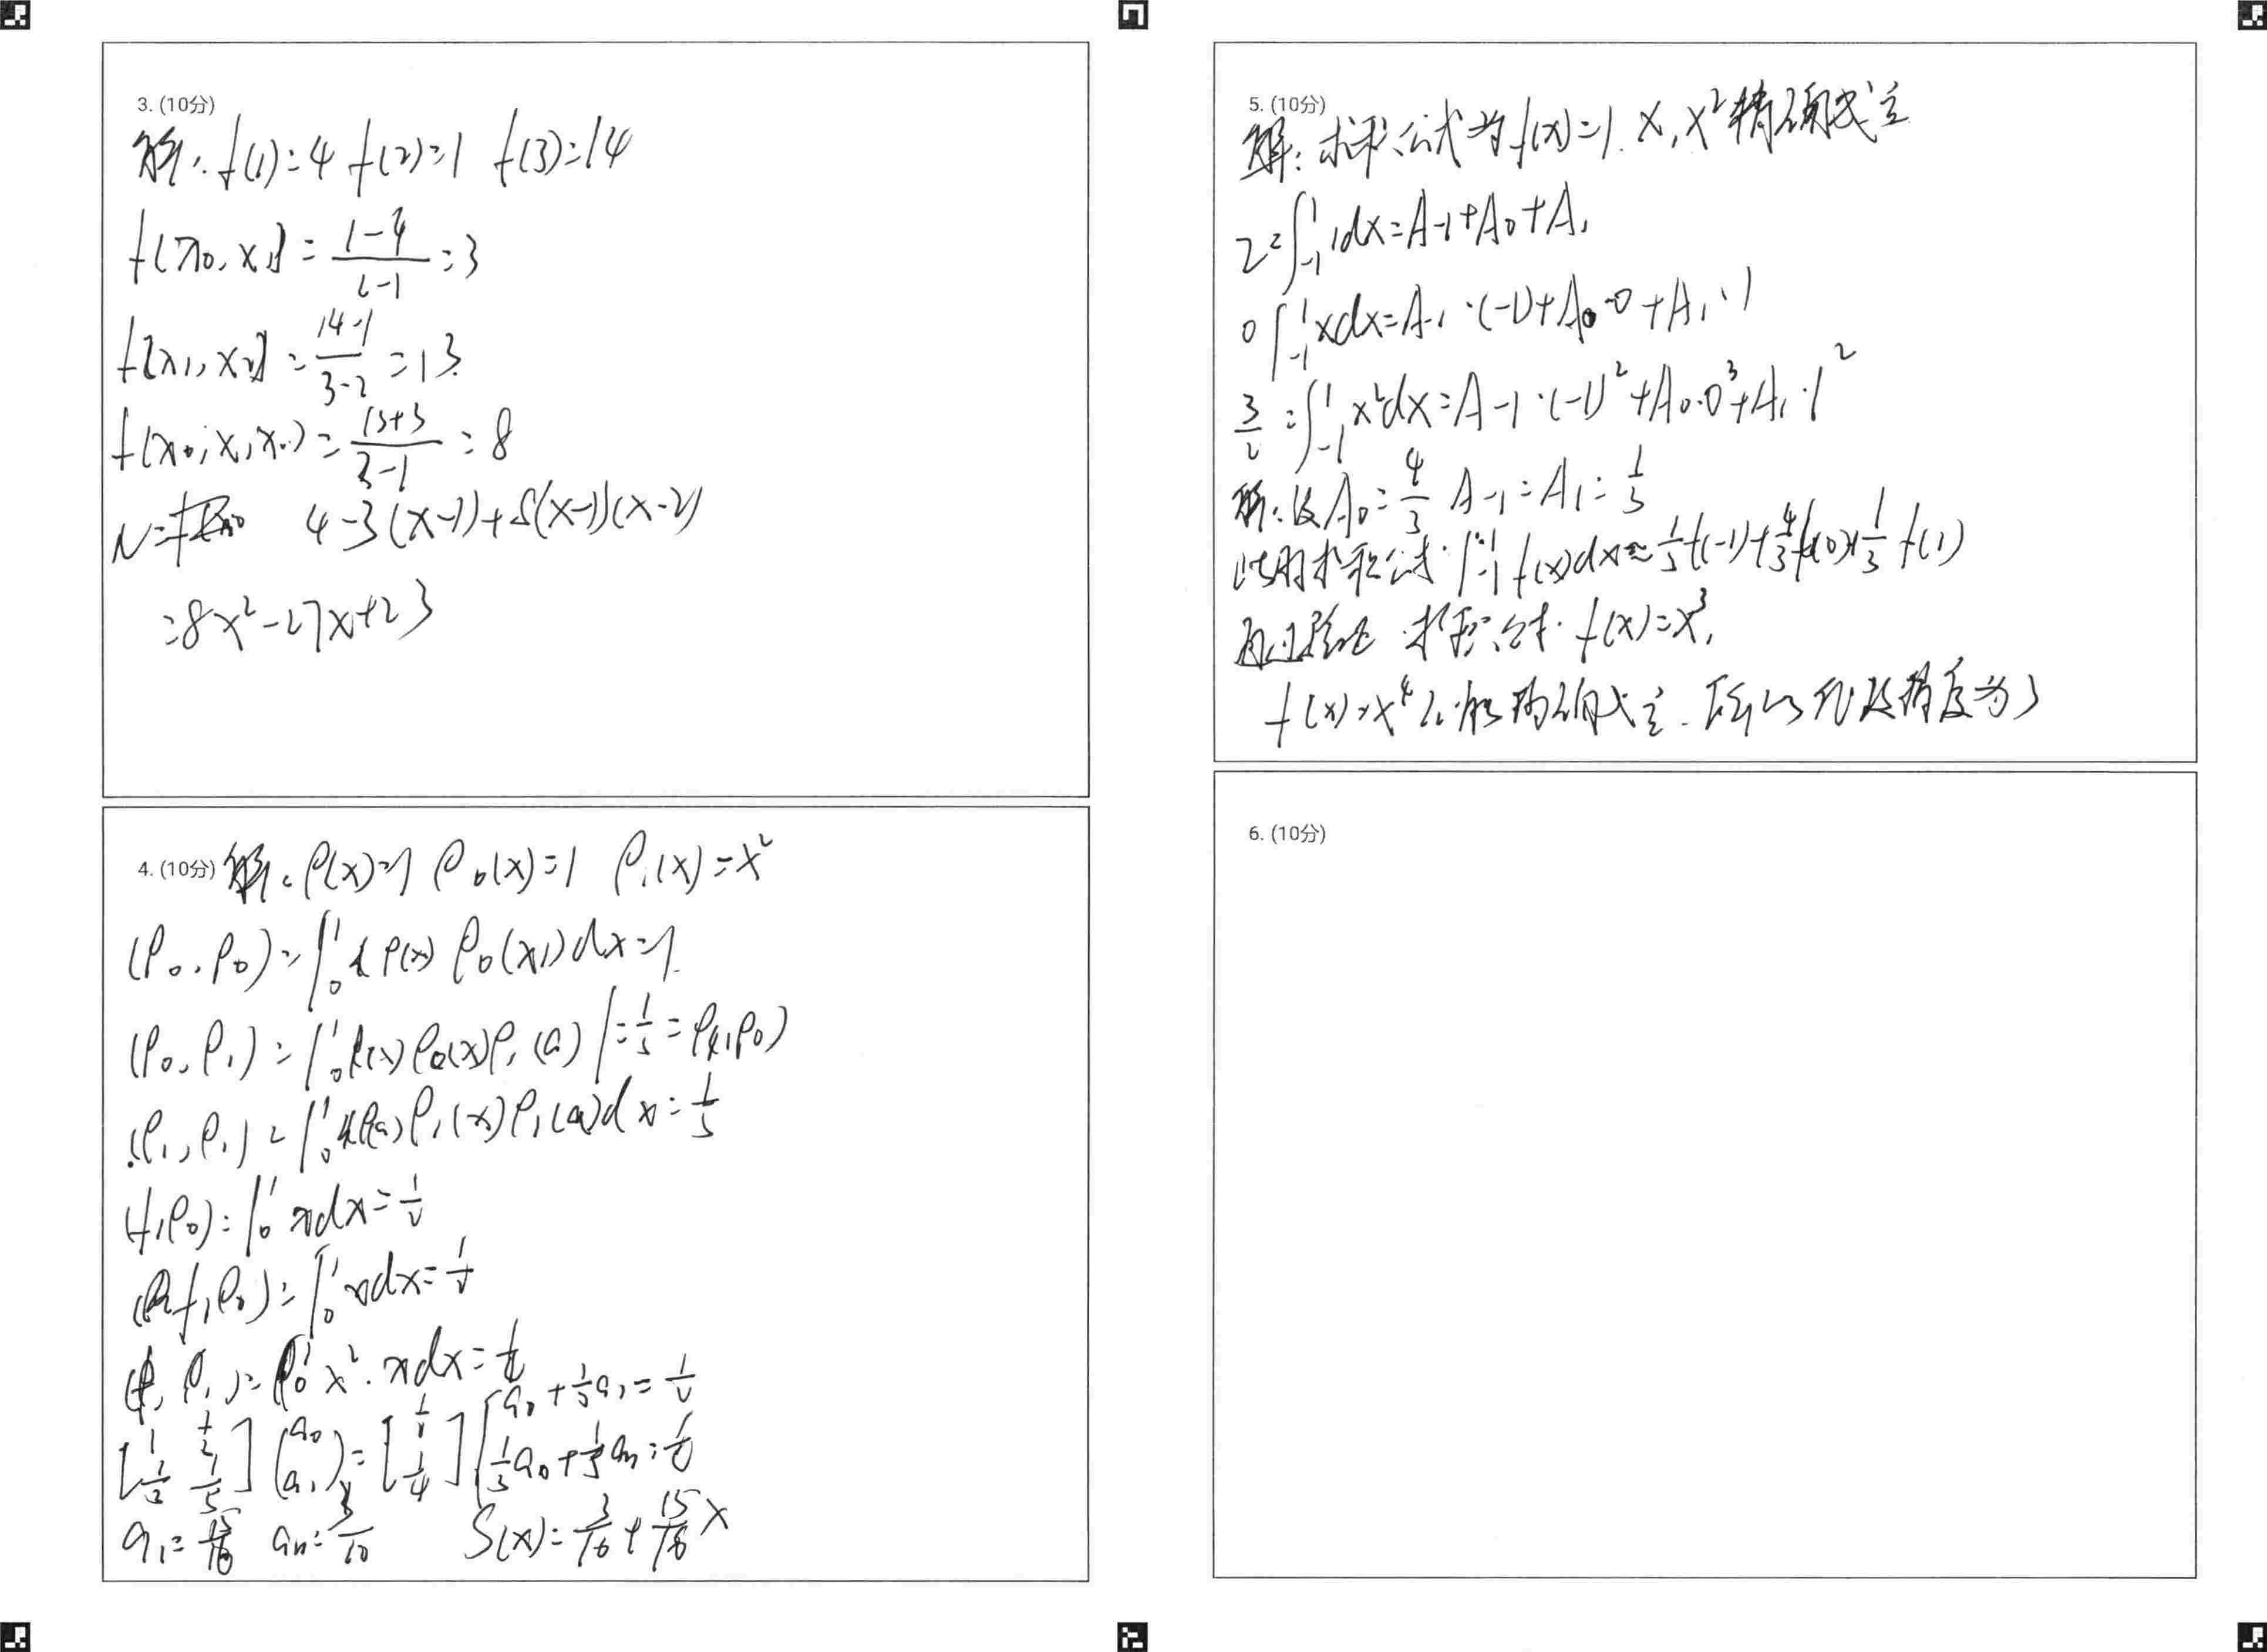 3. (10分)
解: f(1)=4 f(2)=1 f(3)=14
f[x0,x1]=(1-4)/(2-1)=3
f[x1,x2]=(14-1)/(3-2)=13
f(x0,x1,x2)=(13+3)/(3-1)=8
N= 4-3(x-1)+8(x-1)(x-2)
=8x²-27x+23
4. (10分) 解: ρ(x)=1 ρ0(x)=1 ρ1(x)=x²
(ρ0,ρ0)=∫₀¹ρ(x)ρ0(x)dx=1
(ρ0,ρ1)=∫₀¹ρ(x)ρ0(x)ρ1(x) =1/3=ρ1,ρ0)
(ρ1,ρ1)=∫₀¹ρ(x)ρ1(x)ρ1(x)dx=1/5
(f,ρ0)=∫₀¹xdx=1/2
(f,ρ0)=∫₀¹xdx=1/2
(f,ρ1)=∫₀¹x²·xdx=
[1 1/3 1/5] (a0 a1)=[1/2 1/4] a0+1/3a1=1/2
1/3a0+1/5a1=
a1=15/16 =3/10 S(x)=3/16+15/16x
5. (10分)
解: 求积公式为f(x)=1.x,x²精确成立
2=∫₋₁¹1dx=A-1+A0+A1
0∫₋₁¹xdx=A-1·(-1)+A0·0+A1·1
3/2=∫₋₁¹x²dx=A-1·(-1)²+A0·0³+A1·1²
解:设A0=4/3 A-1=A1=1/3
此时求积公式∫₋₁¹f(x)dx≈1/3f(-1)+4/3f(0)+1/3f(1)
通过验证 求积公式 f(x)=x³,
f(x)=x⁴不能精确成立.所以代数精度为3
6. (10分)